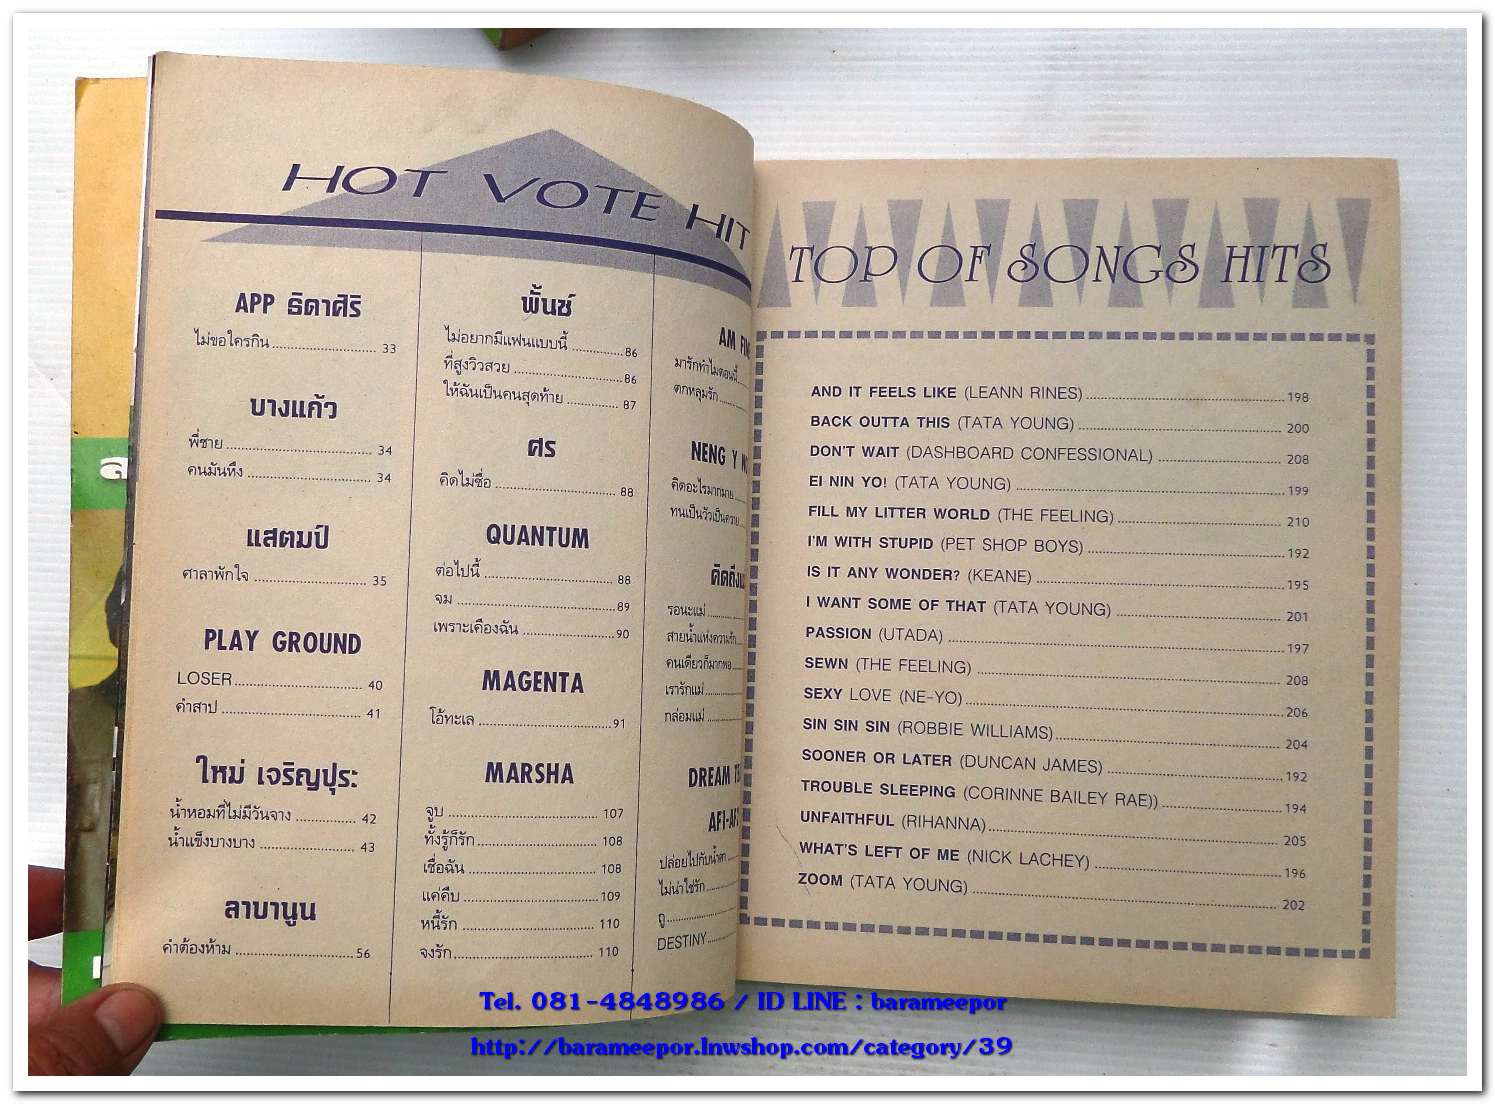 HOT VOTE HIT
APP ธิดาศิริ
ไม่ขอใครกิน 33
บางแก้ว
พี่ชาย 34
คนมันหึง 34
แสตมป์
ศาลาพักใจ 35
PLAY GROUND
LOSER 40
คำสาป 41
ใหม่ เจริญปุระ
น้ำหอมที่ไม่มีวันจาง 42
น้ำแข็งบางบาง 43
ลาบานูน
คำต้องห้าม 56
พั้นช์
ไม่อยากมีแฟนแบบนี้ 86
ที่สูงวิวสวย 86
ให้ฉันเป็นคนสุดท้าย 87
ศร
คิดไม่ซื่อ 88
QUANTUM
ต่อไปนี้ 88
จม 89
เพราะเคืองฉัน 90
MAGENTA
โอ้ทะเล 91
MARSHA
จูบ 107
ทั้งรู้ก็รัก 108
เชื่อฉัน 108
แค่คืบ 109
หนี้รัก 110
จงรัก 110
AM FINE
มารักทำไมตอนนี้
ตกหลุมรัก
NENG Y
คิดอะไรมากมาย
ทนเป็นวัวเป็นควาย
คิดถึงแม่
รอนะแม่
สายน้ำแห่งความรัก
คนเดียวก็มากพอ
เรารักแม่
กล่อมแม่
DREAM
AF1-AF3
ปล่อยไปกับน้ำตา
ไม่น่าใช่รัก
ถู
DESTINY
TOP OF SONGS HITS
AND IT FEELS LIKE (LEANN RINES) 198
BACK OUTTA THIS (TATA YOUNG) 200
DON'T WAIT (DASHBOARD CONFESSIONAL) 208
EI NIN YO! (TATA YOUNG) 199
FILL MY LITTER WORLD (THE FEELING) 210
I'M WITH STUPID (PET SHOP BOYS) 192
IS IT ANY WONDER? (KEANE) 195
I WANT SOME OF THAT (TATA YOUNG) 201
PASSION (UTADA) 197
SEWN (THE FEELING) 208
SEXY LOVE (NE-YO) 206
SIN SIN SIN (ROBBIE WILLIAMS) 204
SOONER OR LATER (DUNCAN JAMES) 192
TROUBLE SLEEPING (CORINNE BAILEY RAE)) 194
UNFAITHFUL (RIHANNA) 205
WHAT'S LEFT OF ME (NICK LACHEY) 196
ZOOM (TATA YOUNG) 202
Tel. 081-4848986 / ID LINE : barameepor
http://barameepor.lnwshop.com/category/39